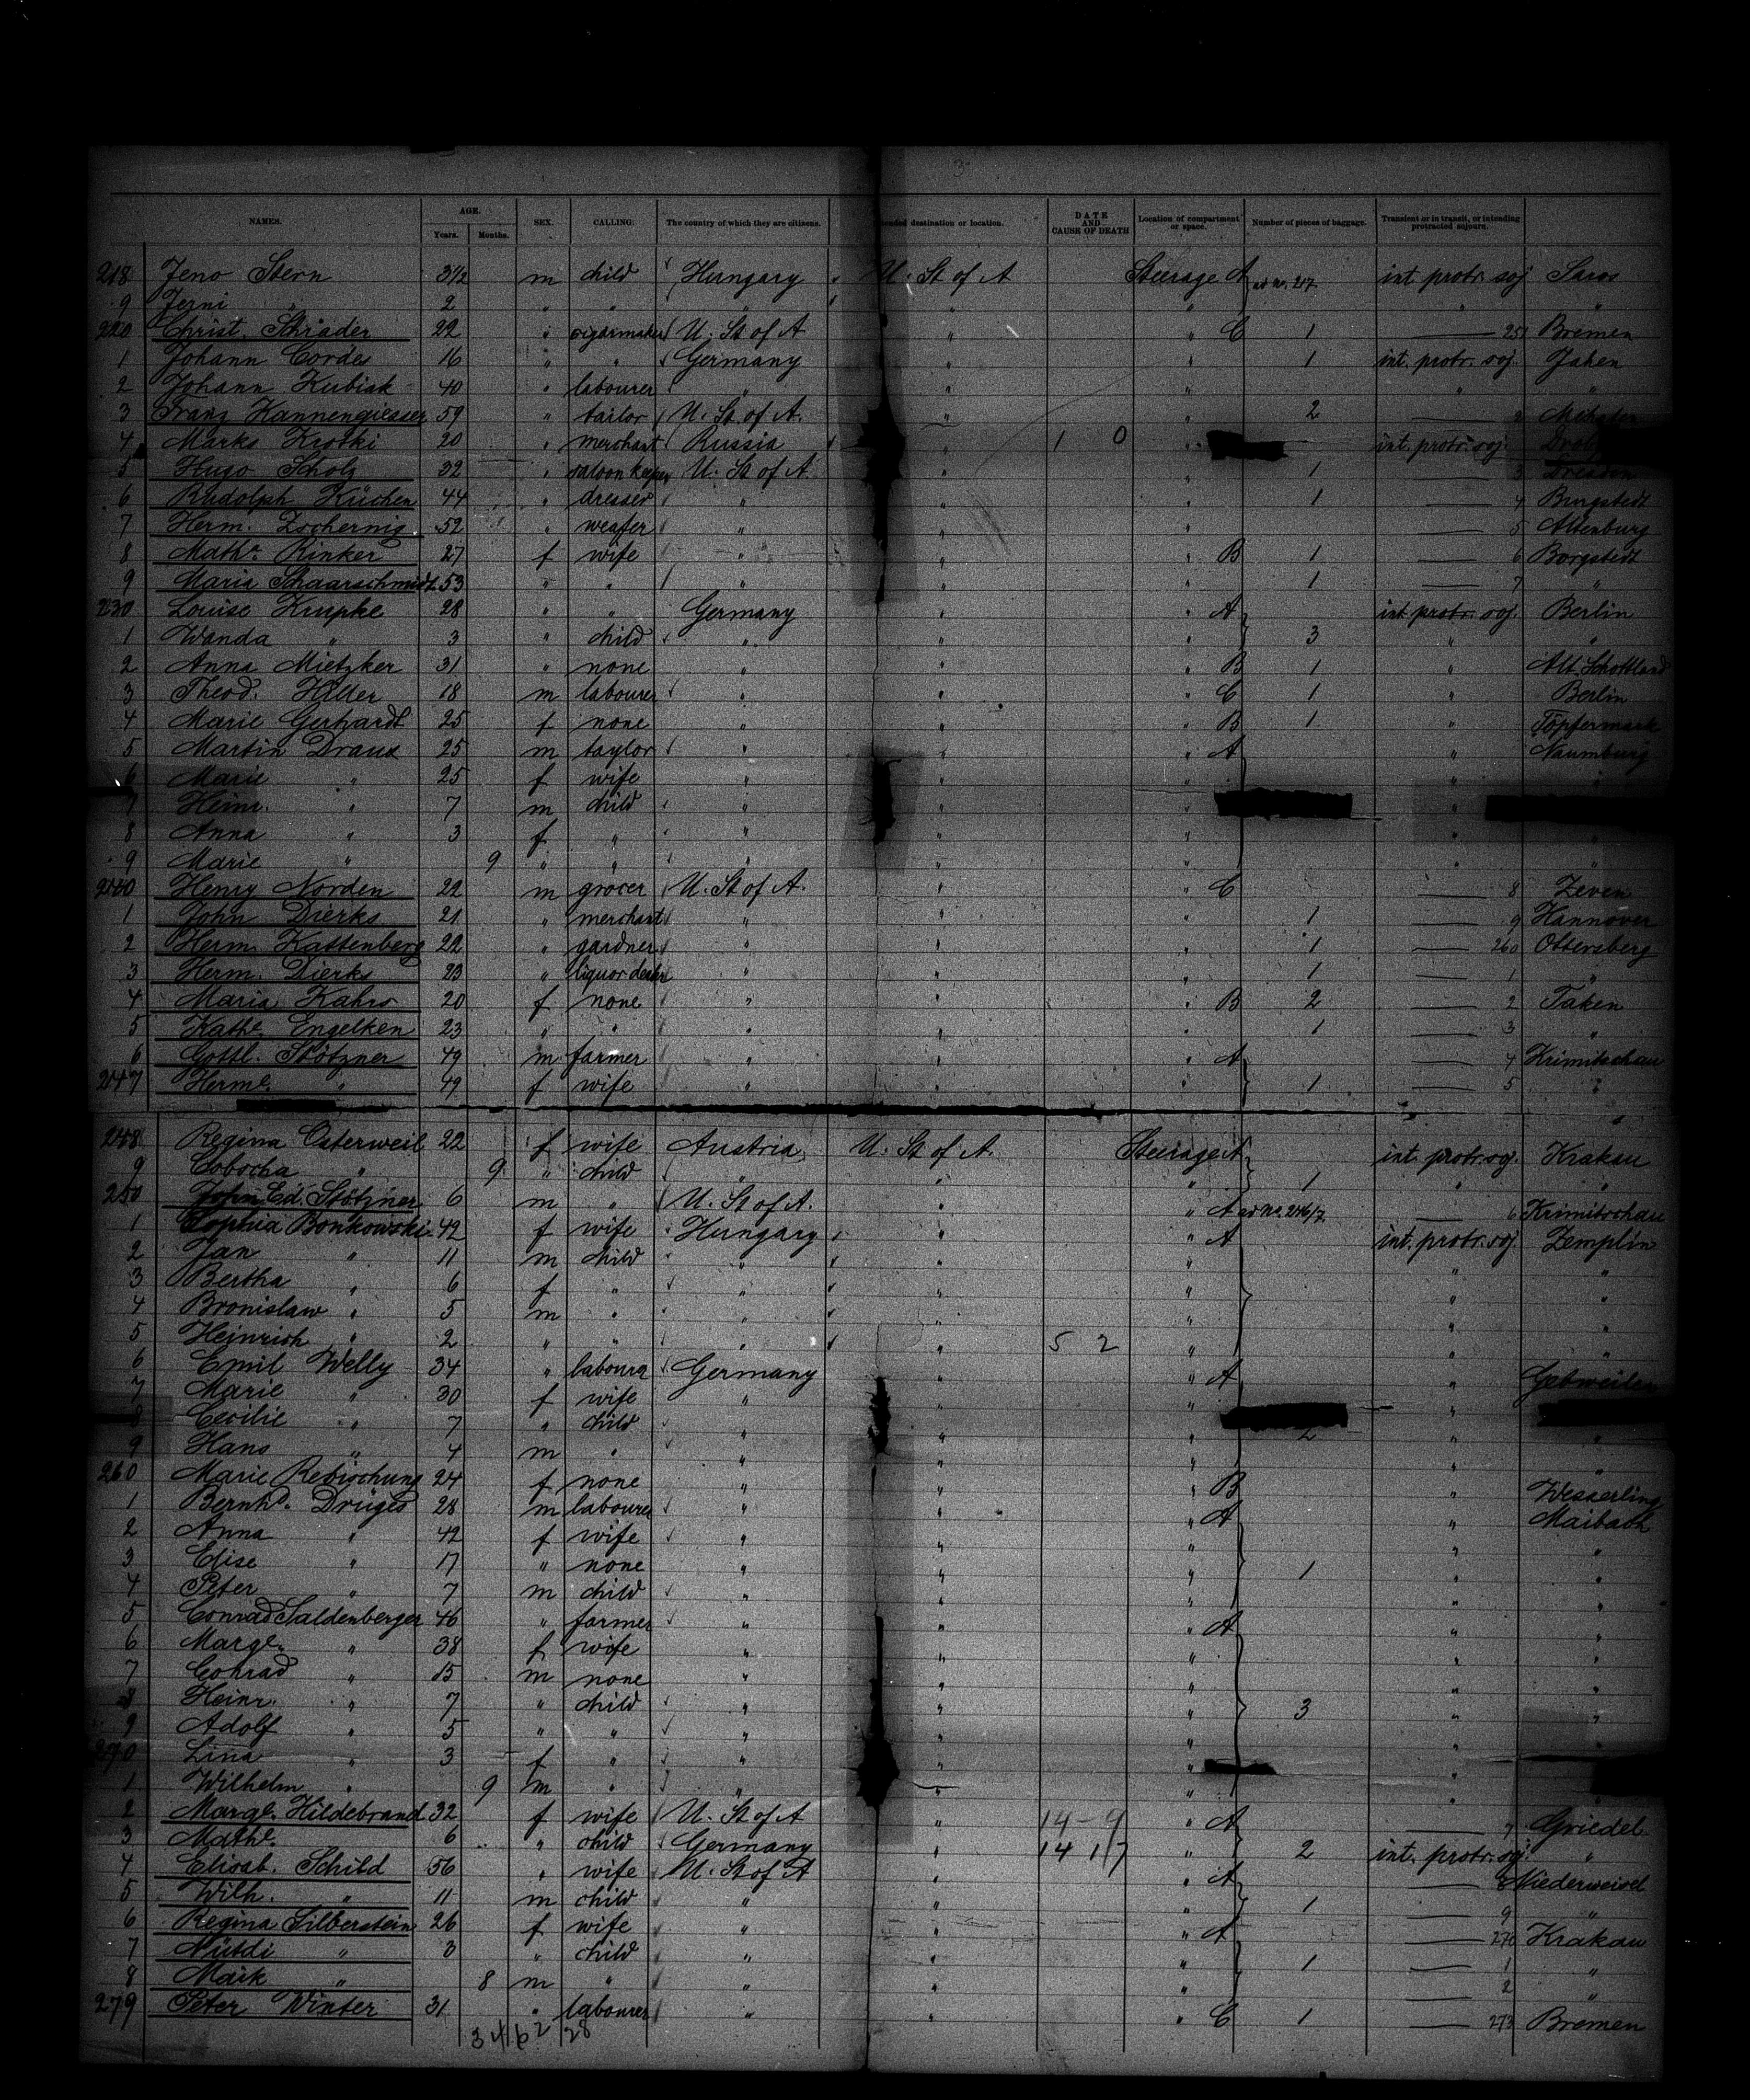 3
NAMES. AGE. SEX. CALLING. The country of which they are citizens. ended destination or location. DATE AND CAUSE OF DEATH Location of compartment or space. Number of pieces of baggage. Transient or in transit, or intending protracted sojourn.
Years. Months.
218 Jeno Stern 3½ m child Hungary U. St of A Steerage A ad No. 217 int protr. soj Saros
9 Jerni " 2 " " " " " " "
220 Christ. Schrader 22 " cigarmaker U. St of A " " C 1 — 25 Bremen
1 Johann Cordes 16 " " Germany " " 1 int. protr. soj. Jahen
2 Johann Kubiak 40 " labourer " " " " "
3 Franz Kannengiesser 59 " tailor U. St. of A. " " 2 — 2
4 Marks Kroski 20 " merchant Russia " 1 0 " int. protr. soj.
5 Hugo Scholz 32 " saloon keeper U. St of A. " " 1 — 3 Dresden
6 Rudolph Küchen 44 " dresser " " " 1 — 4 Burgstedt
7 Herm. Zschernig 52 " weafer " " " — 5 Altenburg
8 Mathe. Rinker 27 f wife " " " B 1 — 6 Borgstedt
9 Maria Schaarschmidt 53 " " " " " 1 — 7 "
230 Louise Krupke 28 " " Germany " " A int protr. soj. Berlin
1 Wanda " 3 " child " " " 3 " "
2 Anna Mietzker 31 " none " " " B 1 " Alt Schottland
3 Theod. Hiller 18 m labourer " " " C 1 " Berlin
4 Marie Gerhardt 25 f none " " " B 1 " Töpfermark
5 Martin Draux 25 m taylor " " " A " Naumburg
6 Marie " 25 f wife " " " " "
7 Heinr. " 7 m child " " " "
8 Anna " 3 f " " " " " "
9 Marie " 9 " " " " " " "
240 Henry Norden 22 m grocer U. St of A. " " C — 8 Zeven
1 John Dierks 21 " merchant " " " 1 — 9 Hannover
2 Herm. Kattenberg 22 " gardner " " " 1 — 260 Ottersberg
3 Herm. Dierks 23 " liquor dealer " " " 1 — 1 "
4 Maria Kahrs 20 f none " " " B 2 — 2 Taken
5 Kathe. Engelken 23 " " " " " 1 — 3 "
6 Gottl. Stötzner 49 m farmer " " " A — 4 Krimitschau
247 Herme. " 49 f wife " " " 1 — 5 "
248 Regina Osterweil 22 f wife Austria U. St of A. Steerage A int. protr. soj. Krakau
9 Cobocha " 9 " child " " " 1 " "
250 John Ed. Stötzner 6 m " U. St of A. " " A ad No. 246/7 — 6 Krimitschau
1 Sophia Bonkowski 42 f wife Hungary " " A int. protr. soj. Zemplin
2 Jan " 11 m child " " " " "
3 Bertha " 6 f " " " " " "
4 Bronislaw " 5 m " " " " " "
5 Heinrich " 2 " " " " 5 2 " " "
6 Emil Welly 34 " labourer Germany " " A " Gebweiler
7 Marie " 30 f wife " " " "
8 Cecilie " 7 " child " " " 2 " "
9 Hans " 4 m " " " " " "
260 Marie Rebischung 24 f none " " " B " Wesserling
1 Bernhd. Drüges 28 m labourer " " " A " Maibach
2 Anna " 42 f wife " " " " "
3 Elise " 17 " none " " " 1 " "
4 Peter " 7 m child " " " " "
5 Conrad Saldenberger 46 " farmer " " " A " "
6 Marge. " 38 f wife " " " " "
7 Cohrad " 15 m none " " " " "
8 Heinr. " 7 " child " " " 3 " "
9 Adolf " 5 " " " " " " "
270 Lina " 3 f " " " " "
1 Wilhelm " 9 m " " " " " "
2 Marge. Hildebrand 32 f wife U. St of A " 14 - 9 " A — 7 Griedel
3 Mathe. 6 " child Germany " 14 1/7 " 2 int. protr. soj. "
4 Elisab. Schild 56 " wife U. St of A " " A — 8 Niederweisel
5 Wilh. " 11 m child " " " 1 — 9 "
6 Regina Silberstein 26 f wife " " " A — 270 Krakau
7 Nütdi " 3 " child " " " 1 — 1 "
8 Maik " 8 m " " " " — 2 "
279 Peter Winter 31 " labourer " " " C 1 — 273 Bremen
34 62 28